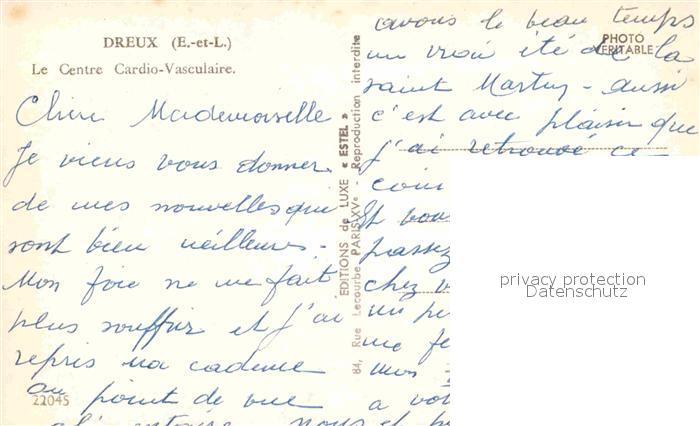 DREUX (E.-et-L.)
Le Centre Cardio-Vasculaire.
Chère Mademoiselle
Je viens vous donner
de mes nouvelles qui
sont bien meilleures -
Mon foie ne me fait
plus souffrir et j'ai
repris ma cadence
au point de vue
nous
22045
EDITIONS de LUXE « ESTEL »
84, Rue Lecourbe PARIS-XVe - Reproduction interdite
PHOTO
VERITABLE
avons le beau temps
un vrai été de la
saint Martin - aussi
c'est avec plaisir que
j'ai retrouvé ce
Et
passez
chez
un
me
mon
a
privacy protection
Datenschutz